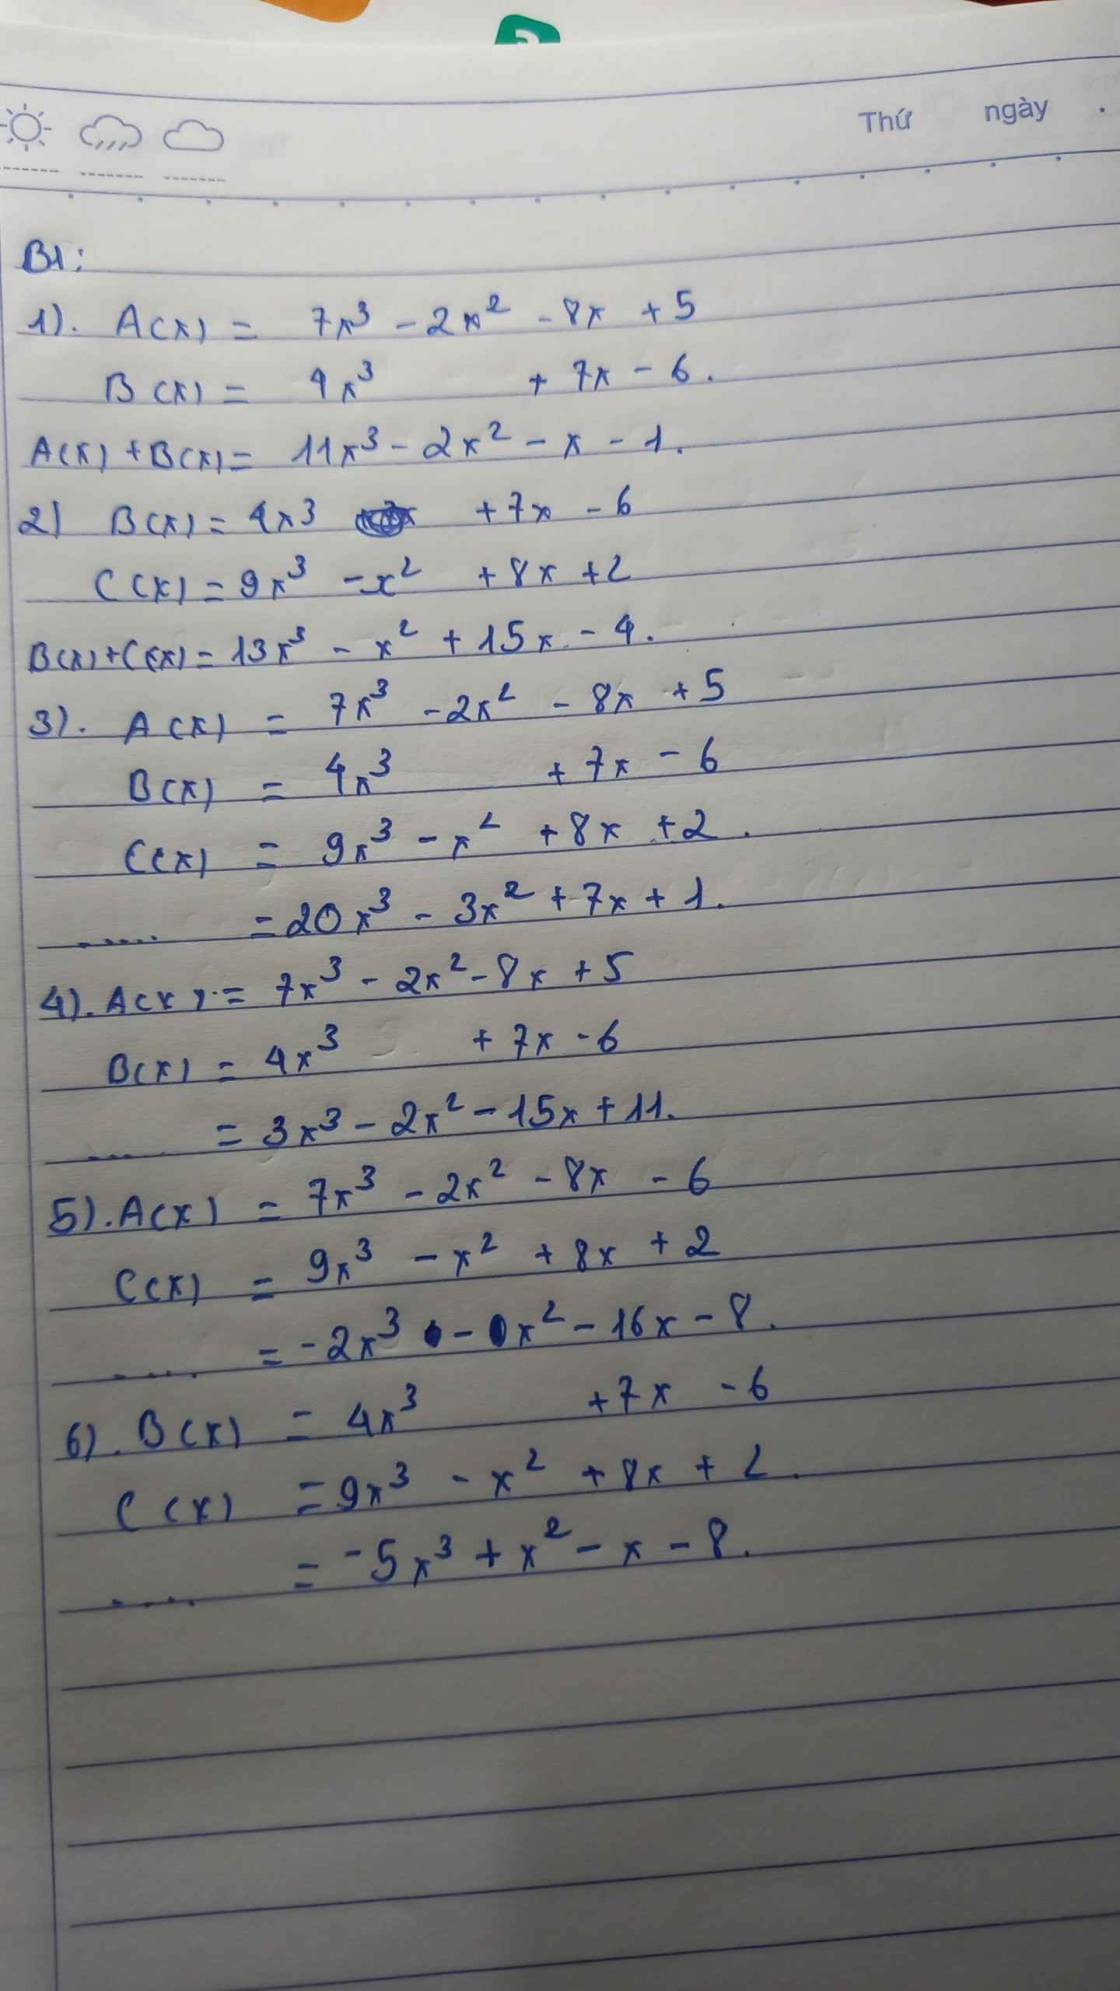 Thứ ngày .
B1:
1). A(x) = 7x³ - 2x² - 8x + 5
B(x) = 4x³ + 7x - 6.
A(x) + B(x) = 11x³ - 2x² - x - 1.
2) B(x) = 4x3 + 7x - 6
C(x) = 9x³ - x² + 8x + 2
B(x) + C(x) = 13x³ - x² + 15x - 4.
3). A(x) = 7x³ - 2x² - 8x + 5
B(x) = 4x³ + 7x - 6
C(x) = 9x³ - x² + 8x + 2.
..... = 20x³ - 3x² + 7x + 1.
4). A(x) = 7x³ - 2x² - 8x + 5
B(x) = 4x³ + 7x - 6
.... = 3x³ - 2x² - 15x + 11.
5). A(x) = 7x³ - 2x² - 8x - 6
C(x) = 9x³ - x² + 8x + 2
..... = -2x³ - x² - 16x - 8.
6). B(x) = 4x³ + 7x - 6
C(x) = 9x³ - x² + 8x + 2.
..... = -5x³ + x² - x - 8.